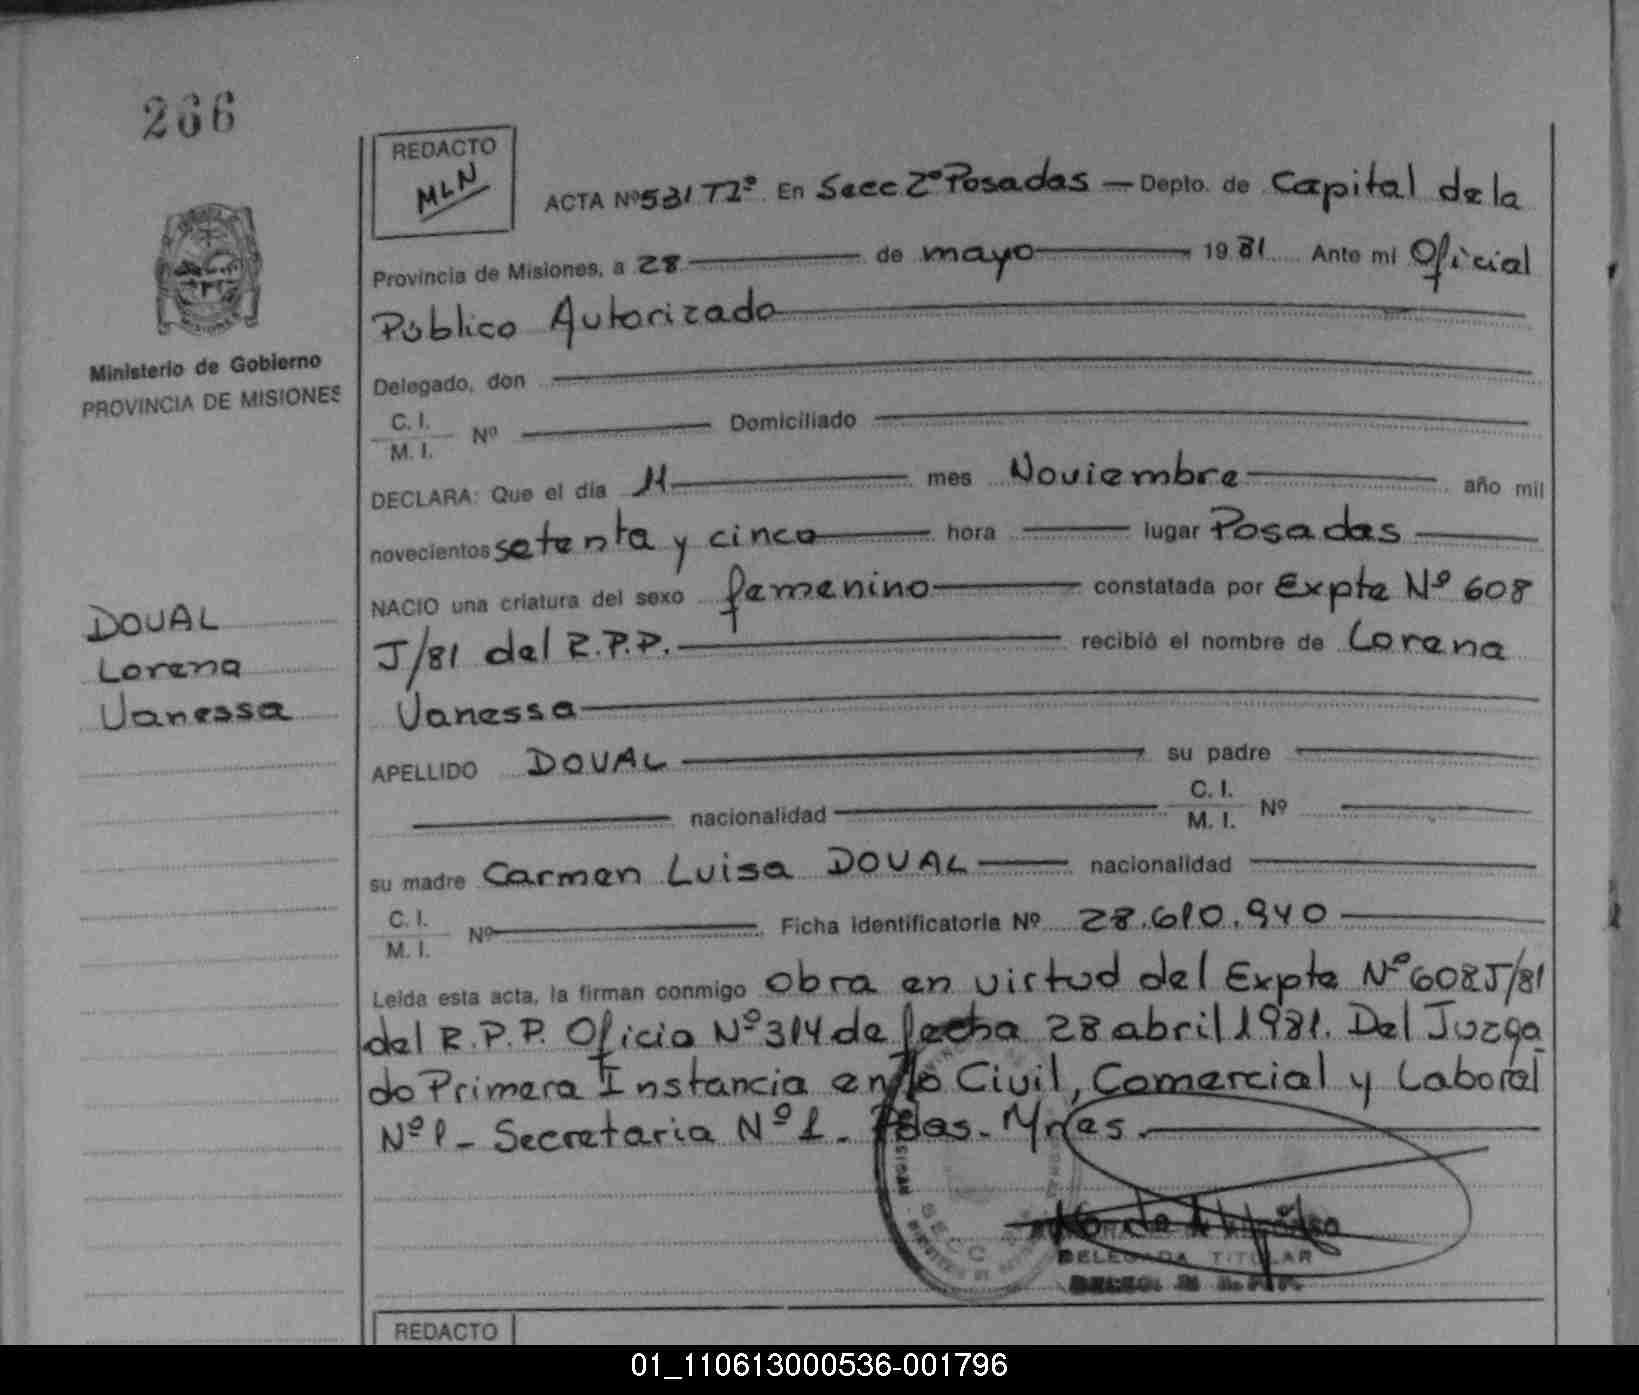 266
REDACTO
MLN
ACTA Nº 531 Tº En Secc 2º Posadas — Depto. de Capital de la
Provincia de Misiones, a 28 de mayo 1981 Ante mi Oficial
Público Autorizado
Ministerio de Gobierno
PROVINCIA DE MISIONES
Delegado, don
C. I.
M. I. Nº Domiciliado
DECLARA: Que el día 11 mes Noviembre año mil
novecientos setenta y cinco hora lugar Posadas
NACIO una criatura del sexo femenino constatada por Expte Nº 608
J/81 del R.P.P. recibió el nombre de Lorena
Vanessa
DOVAL
Lorena
Vanessa
APELLIDO DOVAL su padre
nacionalidad C. I.
M. I. Nº
su madre Carmen Luisa DOVAL nacionalidad
C. I.
M. I. Nº Ficha identificatoria Nº 28.610.940
Leída esta acta, la firman conmigo Obra en virtud del Expte Nº 608J/81
del R.P.P. Oficio Nº 314 de fecha 28 abril 1981. Del Juzga
do Primera Instancia en lo Civil, Comercial y Laboral
Nº 1 - Secretaria Nº 1 - Pdas. Mnes.
SECC
DELEGADA TITULAR
REDACTO
01_110613000536-001796